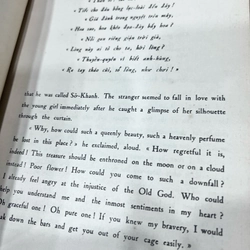 « Tiếc cho đâu bỗng lạc-loài đến đây?
« Giá đành trong nguyệt trên mây,
« Hoa sao, hoa khéo đọa-đày bấy hoa?
« Nổi gan riêng giận trời già,
« Lòng này ai tỏ cho ta, hỡi lòng?
« Thuyền-quyên ví biết anh-hùng,
« Ra tay tháo cũi, sổ lồng, như chơi! »
that he was called Sở-Khanh. The stranger seemed to fall in love with
the young girl immediately after he caught a glimpse of her silhouette
through the curtain.
« Why, how could such a queenly beauty, such a heavenly perfume
be lost in this place? » he exclaimed, aloud. « How regretful it is,
ndeed! This treasure should be enthroned on the moon or on a cloud
nstead! Poor flower! How could you come to such a downfall?
I already feel angry at the injustice of the Old God. Who could
help you understand me and the inmost sentiments in my heart?
Oh graceful one! Oh pure one! If you knew my bravery, I would
ak down the bars and get you out of your cage easily. »